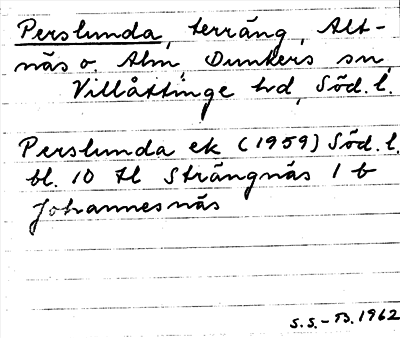 Perslunda, terräng, Alt-
näs o. Alm Dunkers sn,
Villåttinge hd, Söd. l.
Perslunda ek (1959) Söd. l.
bl. 10 tl Strängnäs 1 b
Johannesnäs
S.S.-B. 1962